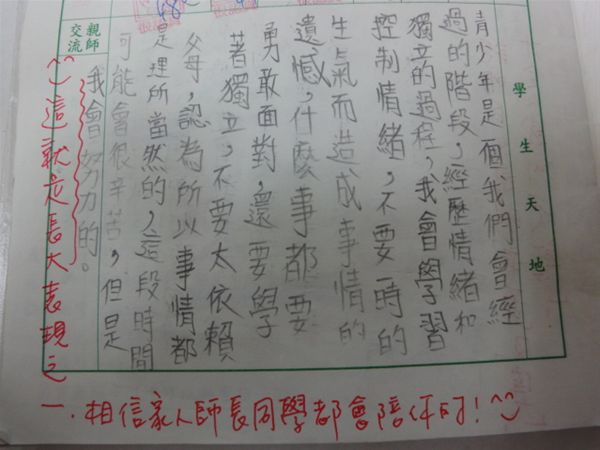 學生天地
青少年是一個我們會經
過的階段,經歷情緒和
獨立的過程,我會學習
控制情緒,不要一時的
生氣而造成事情的
遺憾,什麼事都要
勇敢面對,還要學
著獨立,不要太依賴
父母,認為所以事情都
是理所當然的,這段時間
可能會很辛苦,但是
我會努力的。
親師交流
^^這就是長大表現之
一.相信家人師長同學都會陪伴的!^^